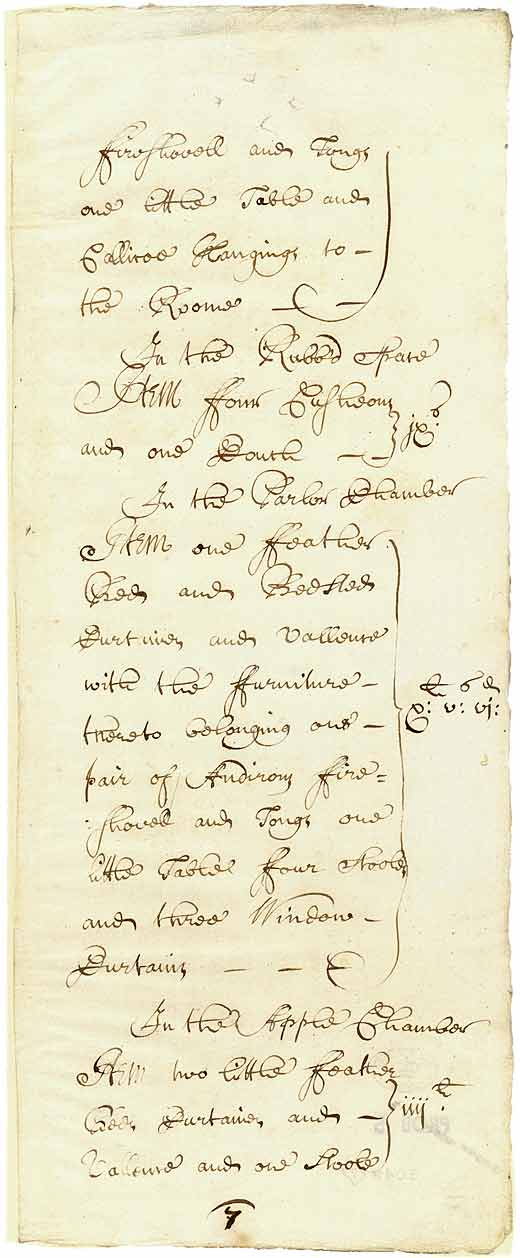 ffireshovell and Tongs
one little Table and
Callicoe Hangings to –
the Roome –
In the Rubbd
Item ffour Cusheons
and one Couch – ix s
In the Parlor Chamber
Item one ffeather
Bed and Bedsted
Curtaines and Vallence
with the ffurniture –
thereto belonging one –
pair of Andirons fire=
shovel and Tongs one
little Table four Stooles
and three Window –
Curtains – –
li s d
x: v: vj:
In the Apple Chamber
Item two little ffeather
Beds Curtaines and – iiij li
Vallence and one Stoole
7